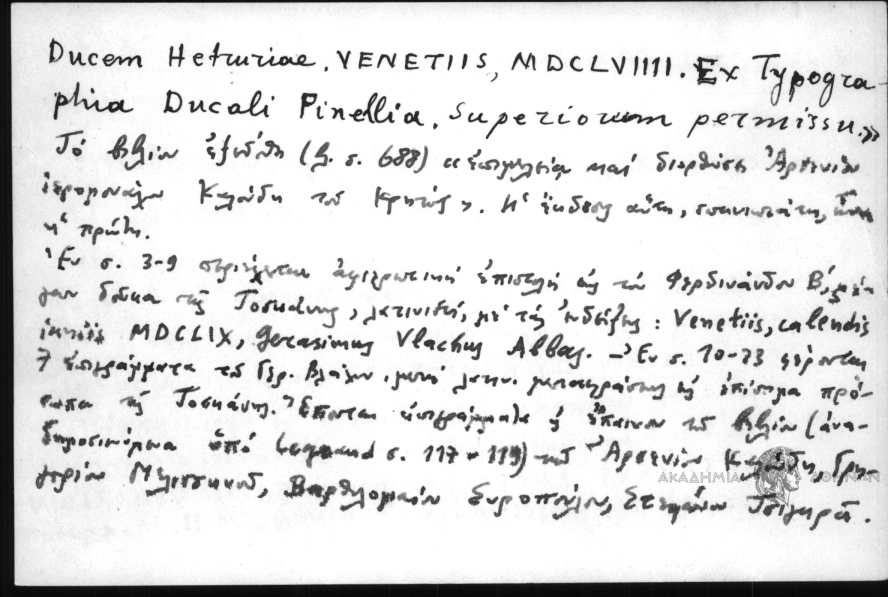 Ducem Hetruriae. VENETIIS, MDCLVIIII. Ex Typogra-
phia Ducali Pinellia. Superiorum permissu.»
Τό βιβλίον ἐξεδόθη (β. σ. 688) «ἐπιμελεία καί διορθώσει Ἀρσενίου
ἱερομονάχου Καλούδη τοῦ Κρητός». Ἡ ἔκδοσις αὕτη, σπανιωτάτη,
ἡ πρώτη.
Ἐν σ. 3-9 περιέχεται ἀφιερωτική ἐπιστολή εἰς τόν Φερδινάνδον Β', μέ-
γαν δοῦκα τῆς Τοσκάνης, λατινιστί, μέ τάς ἐνδείξεις: Venetiis, calendis
MDCLIX, Gerasimus Vlachus Abbas. — Ἐν σ. 10-23 φέρονται
7 ἐπιγράμματα τοῦ Γερ. Βλάχου, μετά λατιν. μεταφράσεως εἰς ἐπίσημα πρό-
σωπα τῆς Τοσκάνης. Ἕπονται ἐπιγράμματα εἰς ἔπαινον τοῦ βιβλίου (ἀνα-
δημοσιευόμενα ὑπό Legrand σ. 117-119) τοῦ Ἀρσενίου Καλούδη, Γρη-
γορίου Μελισσηνοῦ, Βαρθολομαίου Συροπούλου, Στεφάνου Τσιγαρᾶ.
ΑΚΑΔΗΜΙΑ ΑΘΗΝΩΝ